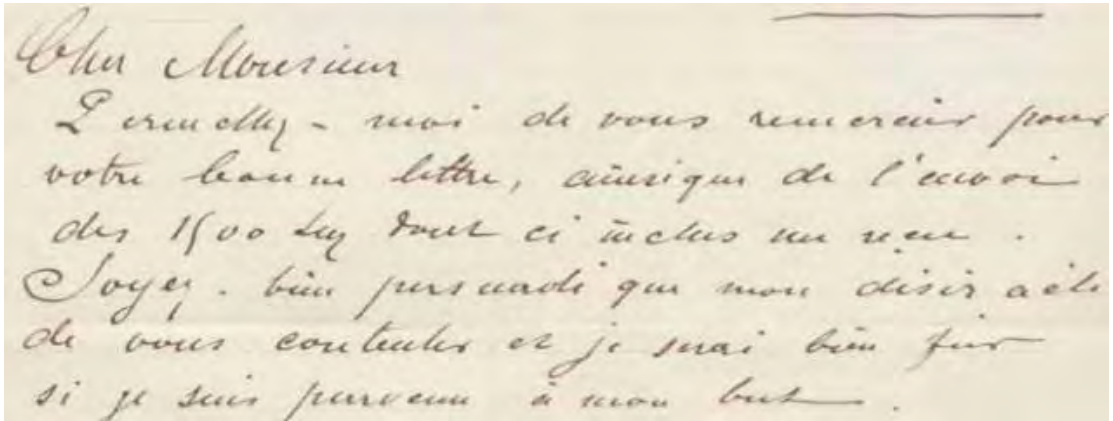 Cher Monsieur
Permettez - moi de vous remercier pour
votre bonne lettre, ainsi que de l'envoi
des 1500 dont ci inclus un recu .
Soyez - bien persuadé que mon désir a été
de vous contenter et je serai bien fier
si je suis parvenu à mon but .